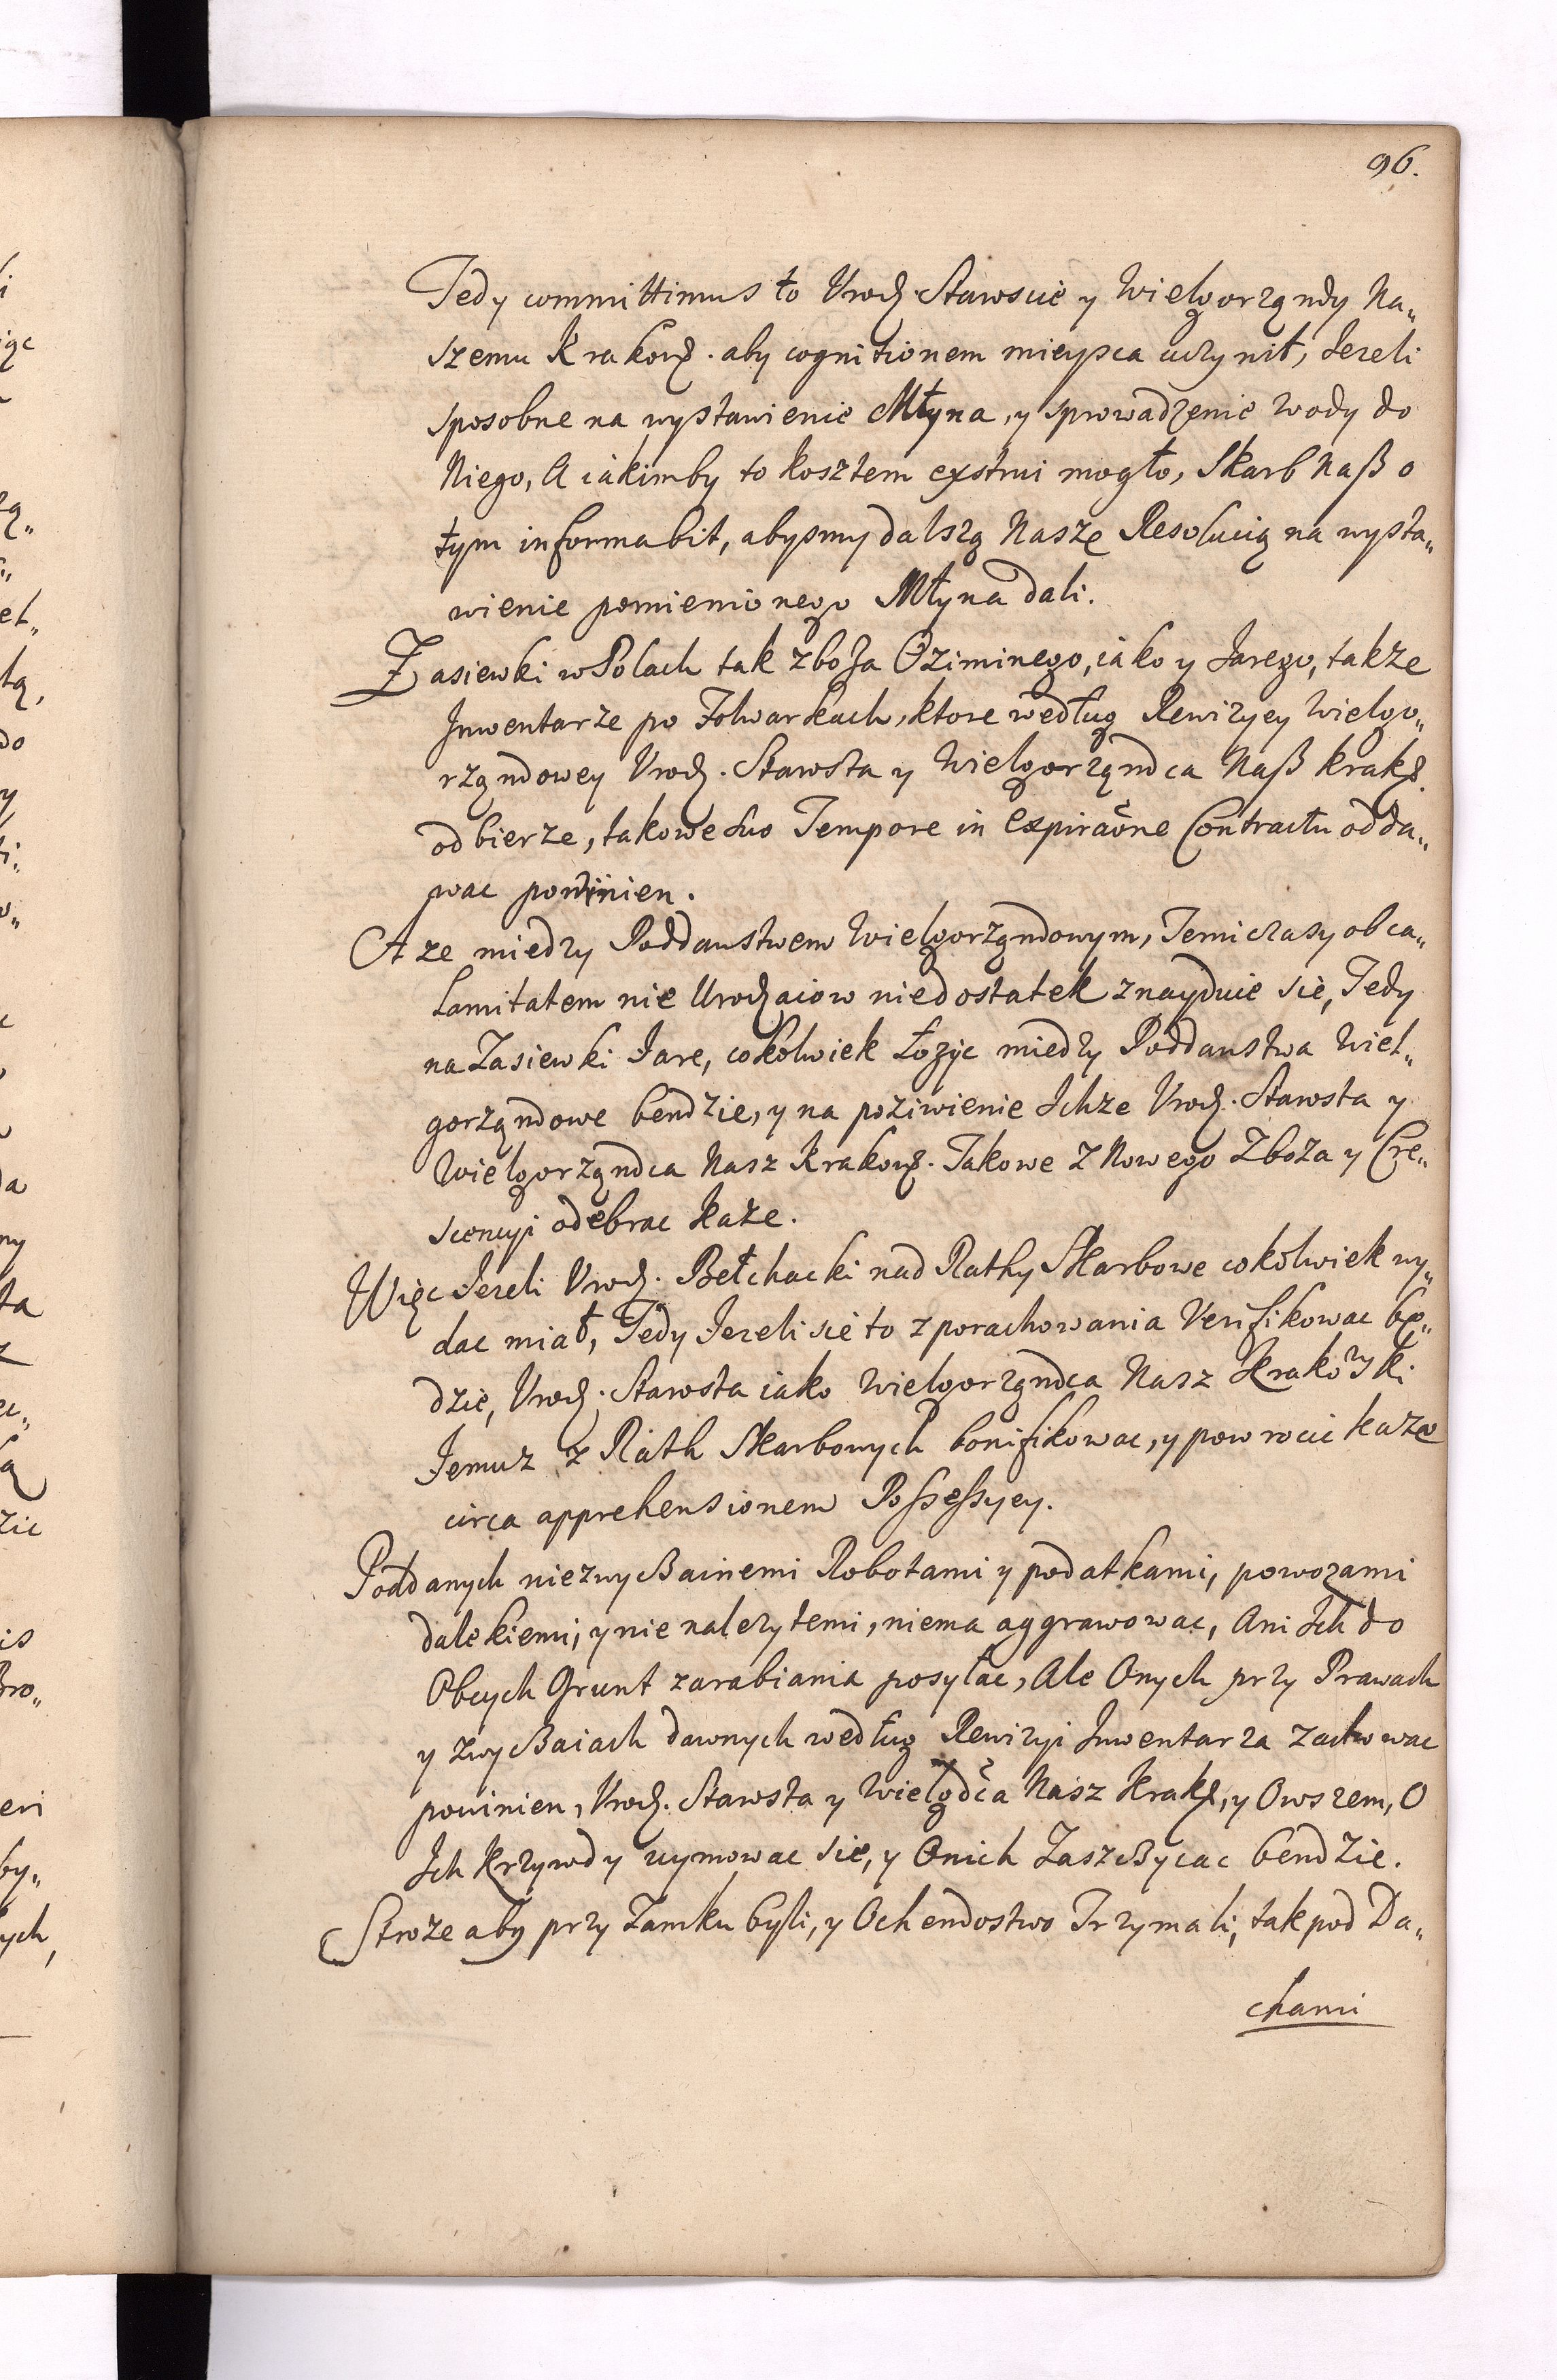 96.
Tedy committimus to Urodz. Staroscie y Wielgorządy Na„
szemu Krakows. aby cognitionem mieysca uczynił, Jezeli
sposobne na wystawienie Młyna, y sprowadzenie wody do
Niego, A iakimby to kosztem exstrui mogło, Skarb Naß o
tym informabit, abysmy dalszą Naszę Resolucią na wysta„
wienie pomienionego Młyna dali.
Zasiewki w Polach tak zboża Oziminego, iako y Jarego, takze
Inwentarze po Folwarkach, ktore według Rewizyey Wielgo„
rządowey Urodz. Starosta y Wielgorządca Naß Kraks.
odbierze, takowe suo Tempore in Expiraone Contractu odda„
wac powinien.
A ze miedzy Poddanstwem Wielgorządowym, Temi czasy ob ca„
lamitatem nie Urodzaiow niedostatek znayduie się, Tedy
na Zasiewki Jare, cokolwiek Łozyc miedzy Poddanstwa Wiel„
gorządowe bendzie, y na poziwienie Ichze Urodz. Starosta y
Wielgorządca Nasz Krakows. Takowe z Nowego Zboza y Cre„
scencyi odebrac każe.
Więc Jezeli Urodz. Bełchacki nad Rathy Skarbowe cokolwiek wy„
dac miał, Tedy Jezeli się to z porachowania Verifikowac bę„
dzie, Urodz. Starosta iako Wielgorządca Nasz Krakowski
Jemuz z Rath Skarbowych bonifikowac, y powrocic każe
circa apprehensionem Possessyey.
Poddanych niezwyczainemi Robotami y podatkami, powozami
dalekiemi, y nie nalezytemi, niema aggrawowac, Ani Ich do
Obcych Grunt zarabiania posyłac, Ale Onych przy Prawach
y zwyczaiach dawnych według Rewizyi Inwentarza zachowac
powinien, Urodz. Starosta y Wielgdca Nasz Kraks, y Owszem, O
Ich Krzywdy uymowac się, y Onich Zaszczycac bendzie.
Stroze aby przy Zamku byli, y Ochendostwo Trzymali, tak pod Da„
chami